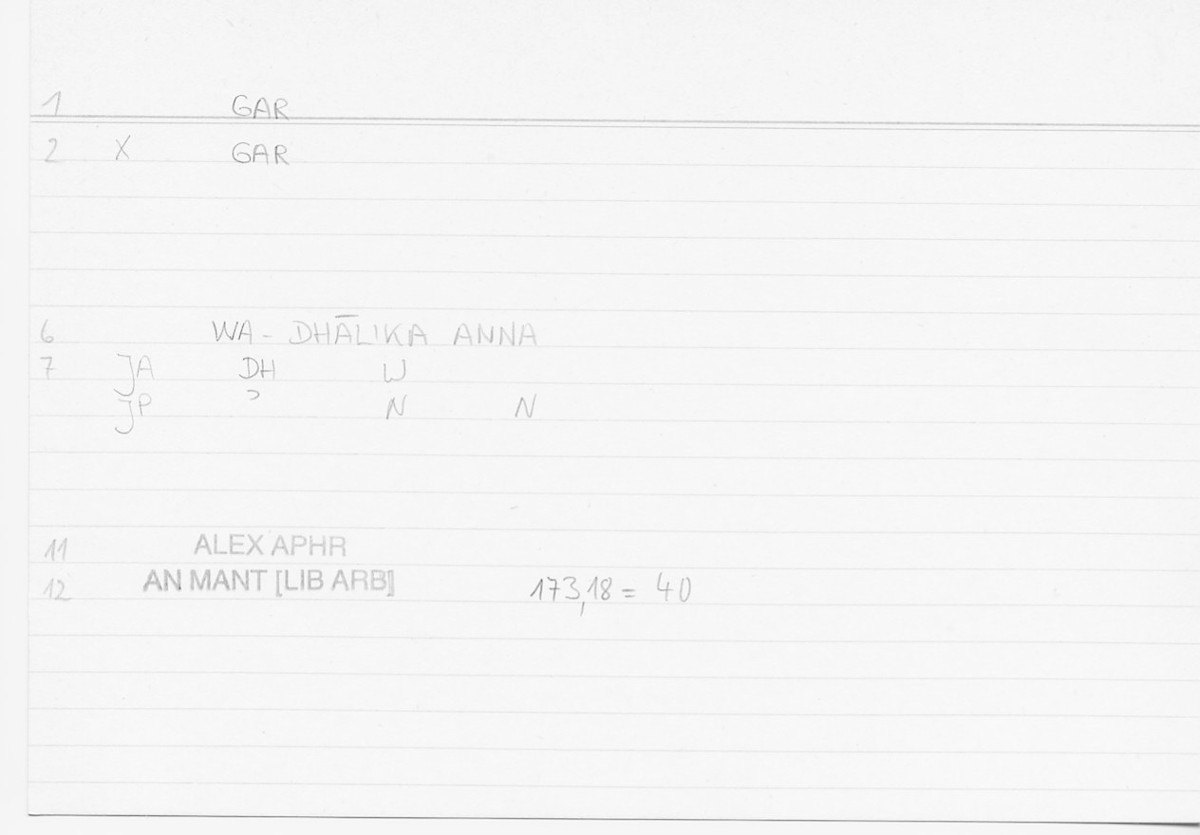 1 GAR
2 X GAR
6 WA- DHĀLIKA ANNA
7 JA DH W
JP ʾ N N
11 ALEX APHR
12 AN MANT [LIB ARB] 173,18 = 40